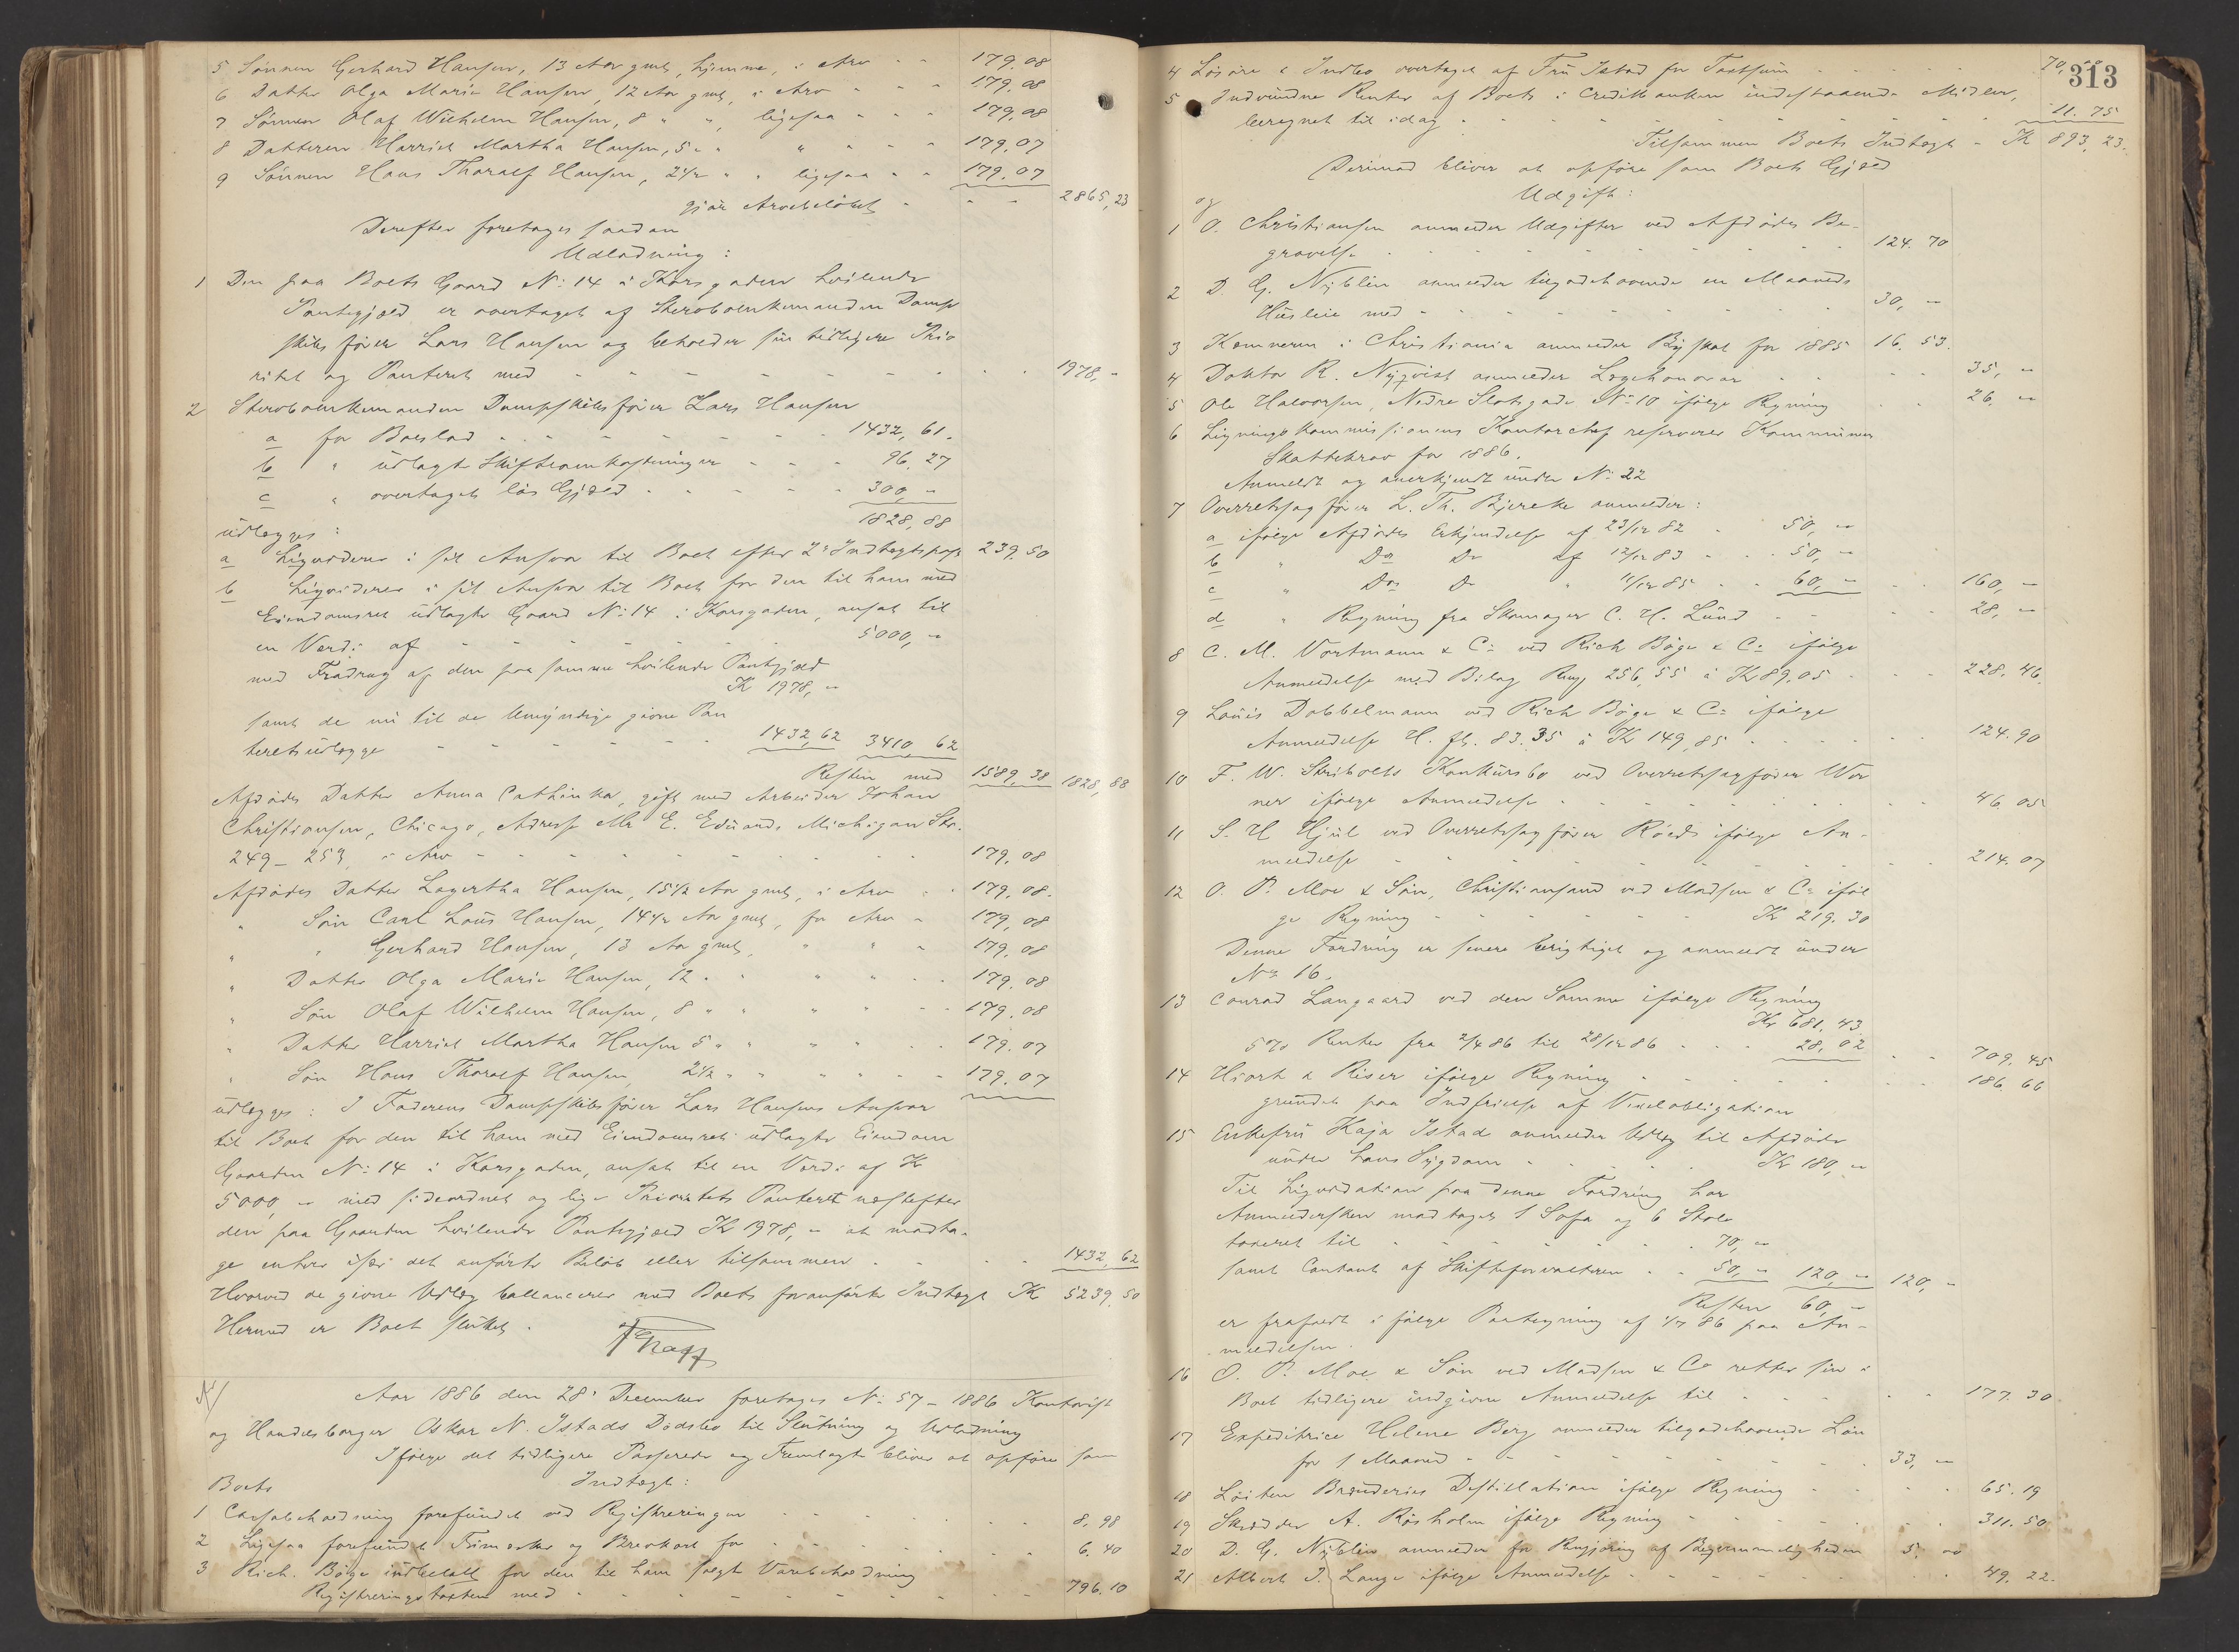 5 Sønnen Gerhard Hansen, 13 Aar gml, hjemme, i Arv - - 179,08
6 Datter Olga Marie Hansen, 12 Aar gml, i Arv - - - 179,08
7 Sønnen Olaf Wilhelm Hansen, 8 " ", ligesaa - - - 179,08
8 Datteren Harriet Martha Hansen, 5 " " " - - - 179,07
9 Sønnen Hans Thoralf Hansen, 2 1/2 " " ligesaa - - 179,07
gjør Arvebeløbet - - - 2865,23
Derefter foretages saadan
Udlodning:
1 Den paa Boets Gaard No: 14 i Korsgaden hvilende
Pantegjæld er overtaget af Stervboenkemanden Damp
skibsfører Lars Hansen og beholder sin tidligere Prio
ritet og Panteret med - - - - 1978, "
2 Stervboenkemanden Dampskibsfører Lars Hansen
a for Boeslod - - - 1432,61.
b " udlagte Skifteomkostninger - - - 96.27
c " overtaget løs Gjæld - - - 300, "
1828,88
udlægges:
a Liqvideres i sit Ansvar til Boet efter 2: Indtægtspost 239,50
b Liqvideres i sit Ansvar til Boet for den til ham med
Eiendomsret udlagte Gaard No: 14 i Korsgaden, ansat til
en Værdi af - - - 5000, "
med Fradrag af den paa samme hvilende Pantegjæld
Kr 1978, "
samt de nu til de Umyndige givne Pan
teretsudlægge - - - 1432,62 3410 62
Resten med 1589,38 1828,88
Afdødes Datter Anna Cathinka, gift med Arbeider Johan
Christiansen, Chicago, Adresse Mr E. Edvards Michigan Str.
249 - 253, i Arv - - - 179,08
Afdødes Datter Lagertha Hansen, 15 1/2 Aar gml, i Arv - - 179,08.
" Søn Carl Laus Hansen, 14 1/2 Aar gml, for Arv - 179,08
" " Gerhard Hansen, 13 Aar gml, " " - 179,08
" Datter Olga Marie Hansen, 12 " " " " - - 179,08
" Søn Olaf Wilhelm Hansen, 8 " " " " - - 179.08
" Datter Harriet Martha Hansen 5 " " " " - - 179.07
" Søn Hans Thoralf Hansen, 2 1/2 " " " " - - 179.07
udlægges: I Faderens Dampskibsfører Lars Hansens Ansvar
til Boet for den til ham med Eiendomsret udlagte Eiendom
Gaarden No: 14 i Korsgaden, ansat til en Værdi af Kr
5000, " med sideordnet og lige Prioritets Panteret næstefter
den paa Gaarden hvilende Pantegjæld Kr 1978, " at modta-
ge enhver især det anførte Beløb eller tilsammen - - - 1432,62
Hvorved de givne Udlæg ballancerer med Boets foranførte Indtægt Kr 5239,50
Hermed er Boet sluttet.
Aar 1886 den 28' December foretages No: 57 - 1886 Kontorist
og Handelsborger Oskar N. Istads Dødsbo til Slutning og Udlodning
Ifølge det tidligere Passerede og Fremlagte bliver at opføre som
Boets Indtægt:
1 Cassabeholdning forefundet ved Registreringen - - - 8,98
2 Ligesaa forefundet Frimærker og Brevkort for - - - 6.40
3 Rich. Bøge indbetalt for den til ham solgte Varebeholdning
Registreringstaxten med - - - 796.10
313
4 Løsøre & Indbo overtaget af Fru Istad for Taxtsum - - - 70,
5 Indvundne Renter af Boets i Creditbanken indestaaende Midler,
beregnet til idag - - - 11.75
Tilsammen Boets Indtægt - Kr 893,23.
Derimod bliver at opføre som Boets Gjæld
og Udgift:
1 O. Christiansen anmelder Udgifter ved Afdødes Be-
gravelse - - - 124.70
2 D. G. Nyblin anmelder tilgodehavende en Maaneds
Husleie med - - - 30, "
3 Kemneren i Christiania anmelder Byskat for 1885 16.53.
4 Doktor R. Nyqvist anmelder Lægehonorar - - - 35, "
5 Ole Halvorsen, Nedre Slotsgade No 10 ifølge Regning - - 26, "
6 Ligningskommissionens Kontorchef reserverer Kommunen
Skattekrav for 1886.
Anmeldt og anerkjendt under No: 22
7 Overretssagfører L. Th. Bjercke anmelder:
a ifølge Afdødes Erkjendelse af 23/12 82 - 50, "
b " Do Do af 12/12 83 - - 50, "
c " Do Do " 11/12 85 - - 60, " - - 160, "
d " Regning fra Skomager C. H. Lund - - - 28, "
8 C. M. Vortmann & Co: ved Rich Bøge & Co: ifølge
Anmeldelse med Bilag Rmf 256,55 à Kr 89.05 - - - 228.46.
9 Louis Dobbelmann ved Rich Bøge & Co: ifølge
Anmeldelse H. fl. 83.35 à Kr 149,85 - - - 124.90
10 F. W. Skiboets Konkursbo ved Overretssagfører Wer
ner ifølge Anmeldelse - - - 46.05
11 S. H Hjul ved Overretssagfører Røed ifølge An-
meldelse - - - 214.07
12 O. P. Moe & Søn, Christiansand ved Madsen & Co: iføl
ge Regning - - - Kr 219.30
Denne Fordring er senere berigtiget og anmeldt under
No 16.
13 Conrad Langaard ved den Samme ifølge Regning
Kr 681.43
5% Renter fra 2/4 86 til 28/12 86 - - - 28,02 - - 709.45
14 Hiorth & Riser ifølge Regning - - - 186 66
grundet paa Indfrielse af Vexelobligation
15 Enkefru Kaja Istad anmelder Udlæg til Afdøde
under hans Sygdom - - - Kr 180, "
Til Liqvidation paa denne Fordring har
Anmeldersken modtaget 1 Sofa og 6 Stole
taxeret til - - - 70, "
samt Contant af Skifteforvalteren - - 50, " 120, " 120, "
Resten 60, "
er frafaldt i følge Paategning af 1/7 86 paa An-
meldelsen.
16 O. P. Moe & Søn ved Madsen & Co retter sin i
Boet tidligere indgivne Anmeldelse til - - - 177.30
17 Expeditrice Helene Berg anmelder tilgodehavende Løn
for 1 Maaned - - - 33, "
18 Løiten Brænderies Destillation ifølge Regning - - - 65.19
19 Skrædder A. Rosholm ifølge Regning - - - 311.50
20 D. G. Nyblin anmelder for Rengjøring af Beqvemmeligheden 5, "
21 Albert I. Lange ifølge Anmeldelse - - - 49.22.